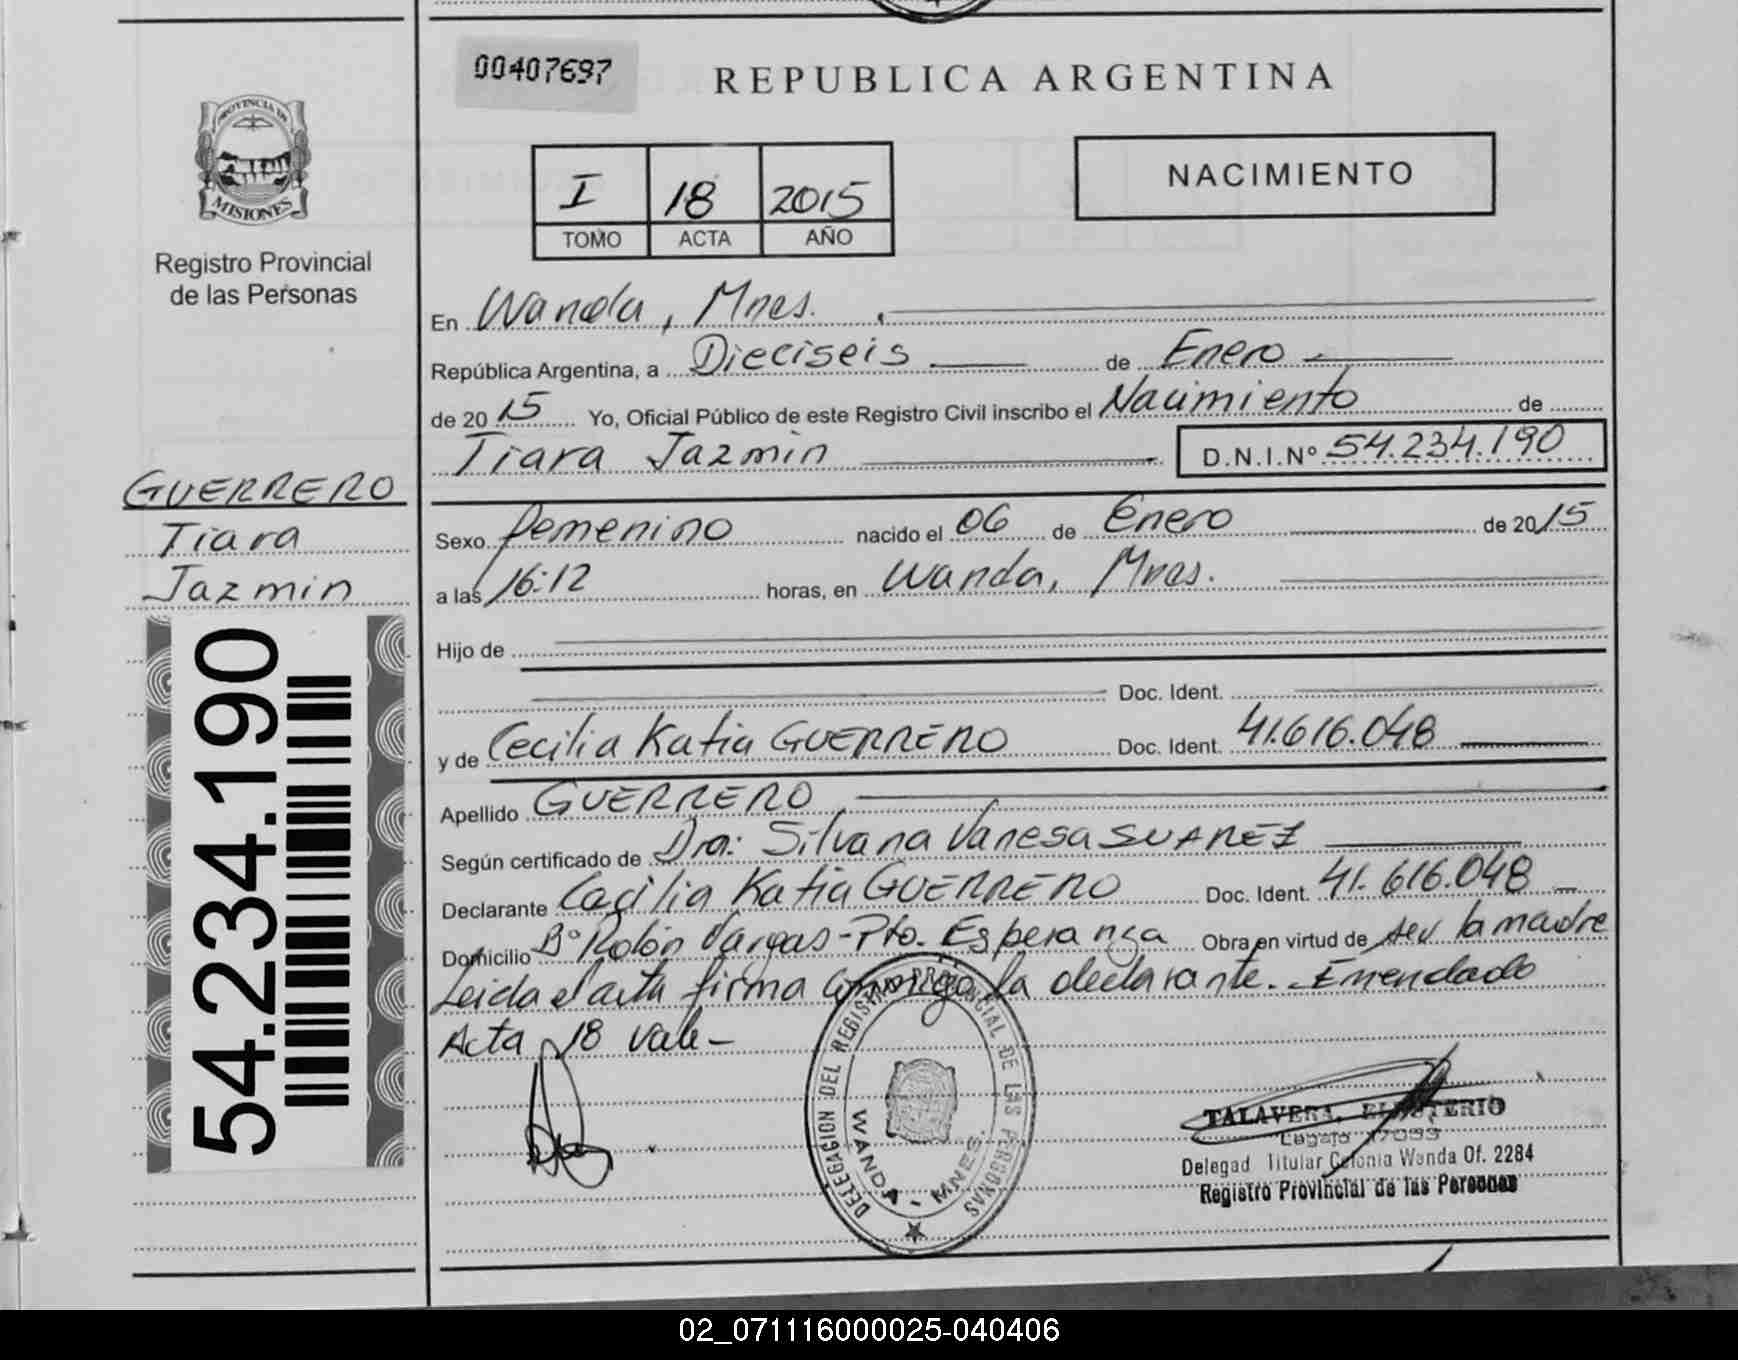 00407697
REPUBLICA ARGENTINA
PROVINCIA DE
MISIONES
Registro Provincial
de las Personas
I 18 2015
TOMO ACTA AÑO
NACIMIENTO
En Wanda, Mnes.
República Argentina, a Dieciseis de Enero
de 2015 Yo, Oficial Público de este Registro Civil inscribo el Nacimiento de
Tiara Jazmin D.N.I.Nº 54.234.190
GUERRERO
Tiara
Jazmin
54.234.190
Sexo femenino nacido el 06 de Enero de 2015
a las 16:12 horas, en Wanda, Mnes.
Hijo de
Doc. Ident.
y de Cecilia Katia GUERRERO Doc. Ident. 41.616.048
Apellido GUERRERO
Según certificado de Dra: Silvana Vanesa SUAREZ
Declarante Cecilia Katia GUERRERO Doc. Ident. 41.616.048
Domicilio Bº Rolón Vargas - Pto. Esperanza Obra en virtud de ser la madre
Leida el acta firma conmigo la declarante. Enmendado
Acta 18 vale -
DELEGACION DEL REGISTRO PROVINCIAL DE LAS PERSONAS
WANDA - MNES.
TALAVERA, ELEUTERIO
Legajo
Delegad Titular Colonia Wanda Of. 2284
Registro Provincial de las Personas
02_071116000025-040406